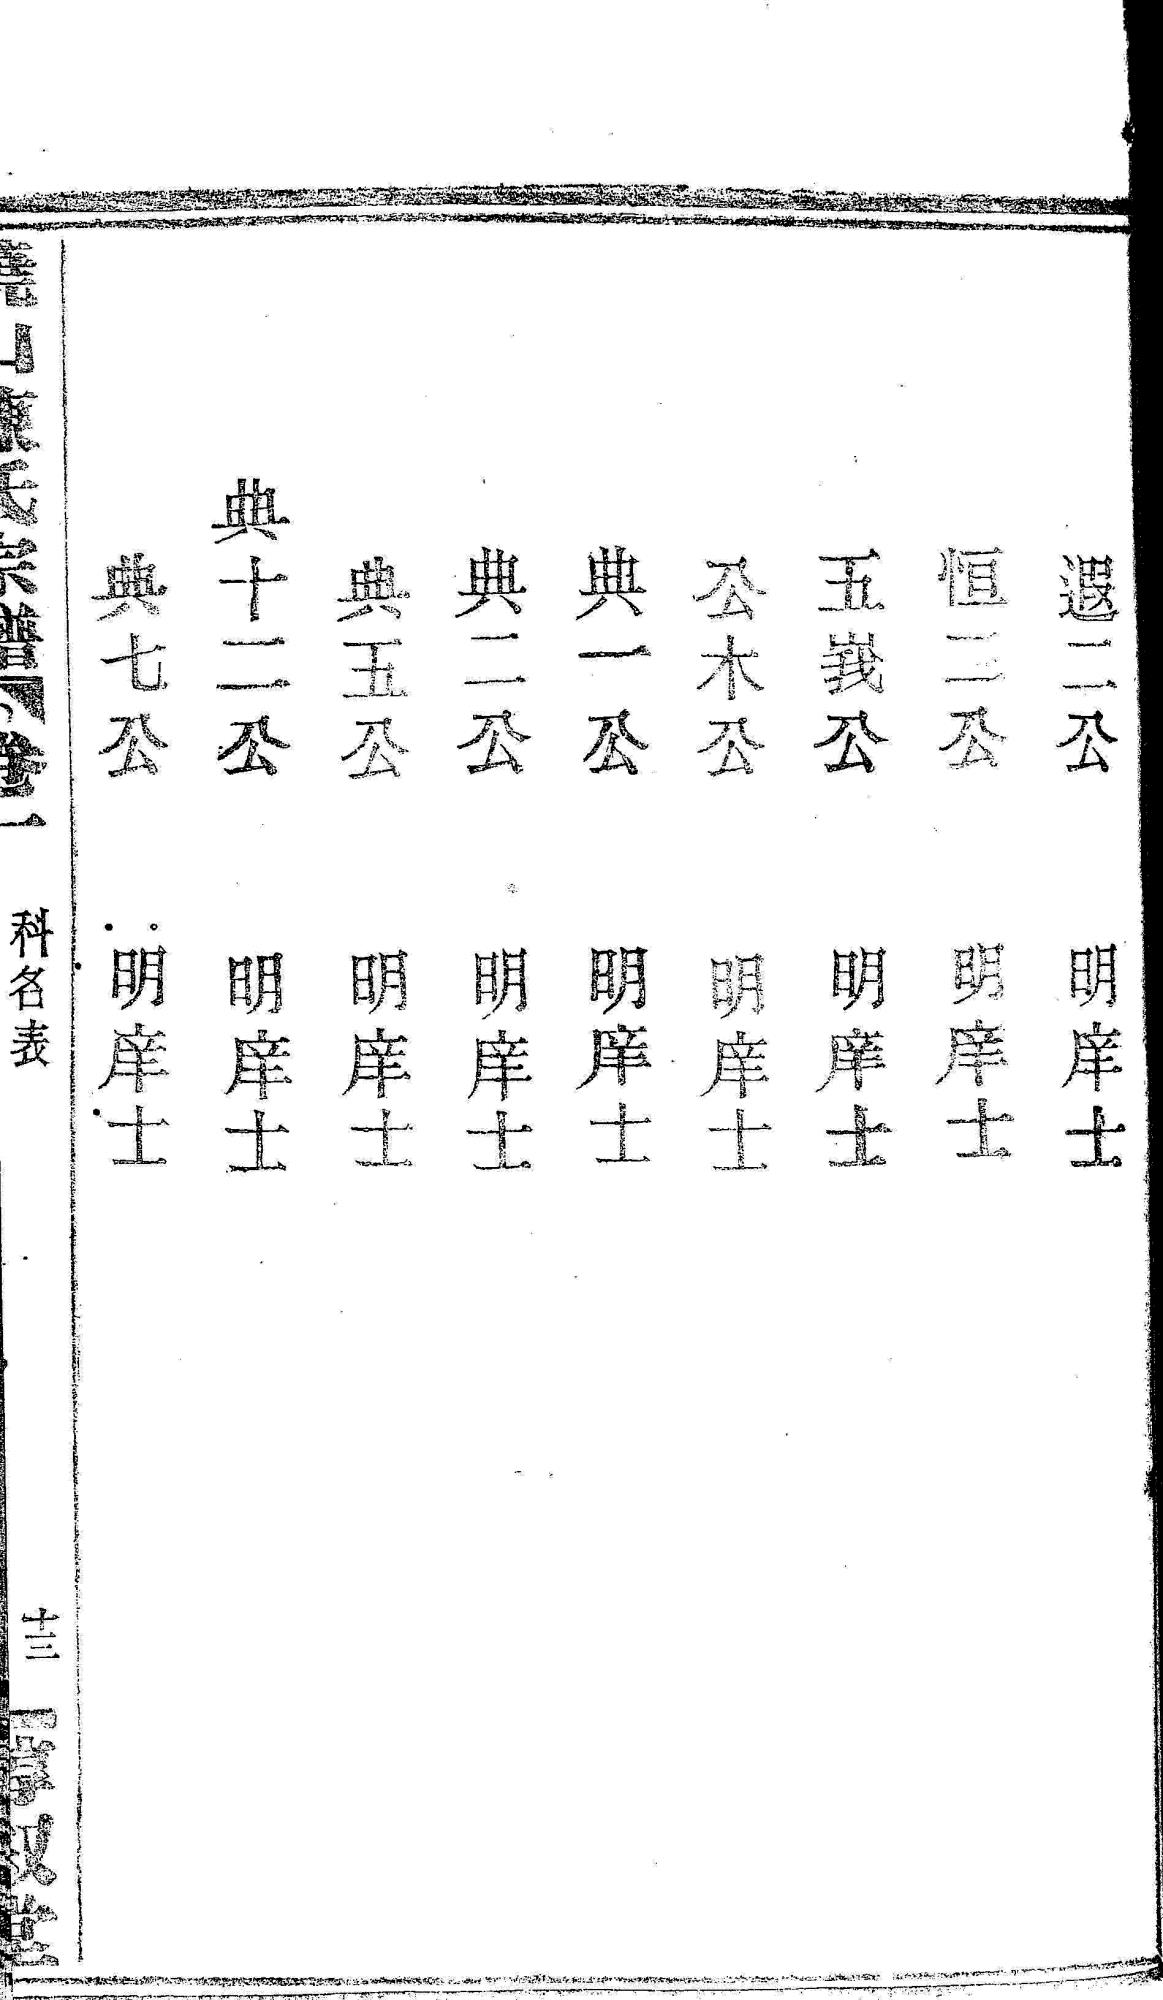 遐二公 明庠士
恒三公 明庠士
五峩公 明庠士
公木公 明庠士
典一公 明庠士
典二公 明庠士
典五公 明庠士
典十二公 明庠士
典七公 明庠士
氏宗譜 卷一 科名表 十三 敘堂